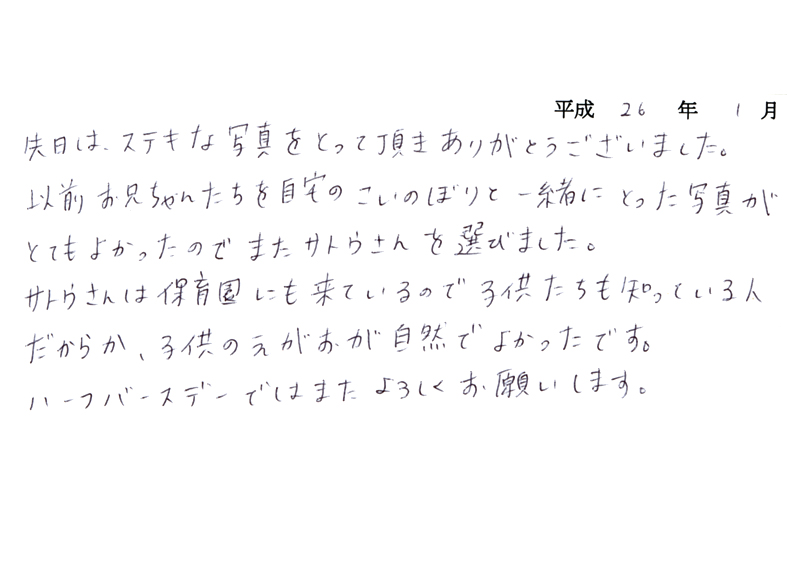 平成 26 年 1 月
先日は、ステキな写真をとって頂きありがとうございました。
以前お兄ちゃんたちを自宅のこいのぼりと一緒にとった写真が
とてもよかったのでまたサトウさんを選びました。
サトウさんは保育園にも来ているので子供たちも知っている人
だからか、子供のえがおが自然でよかったです。
ハーフバースデーではまたよろしくお願いします。